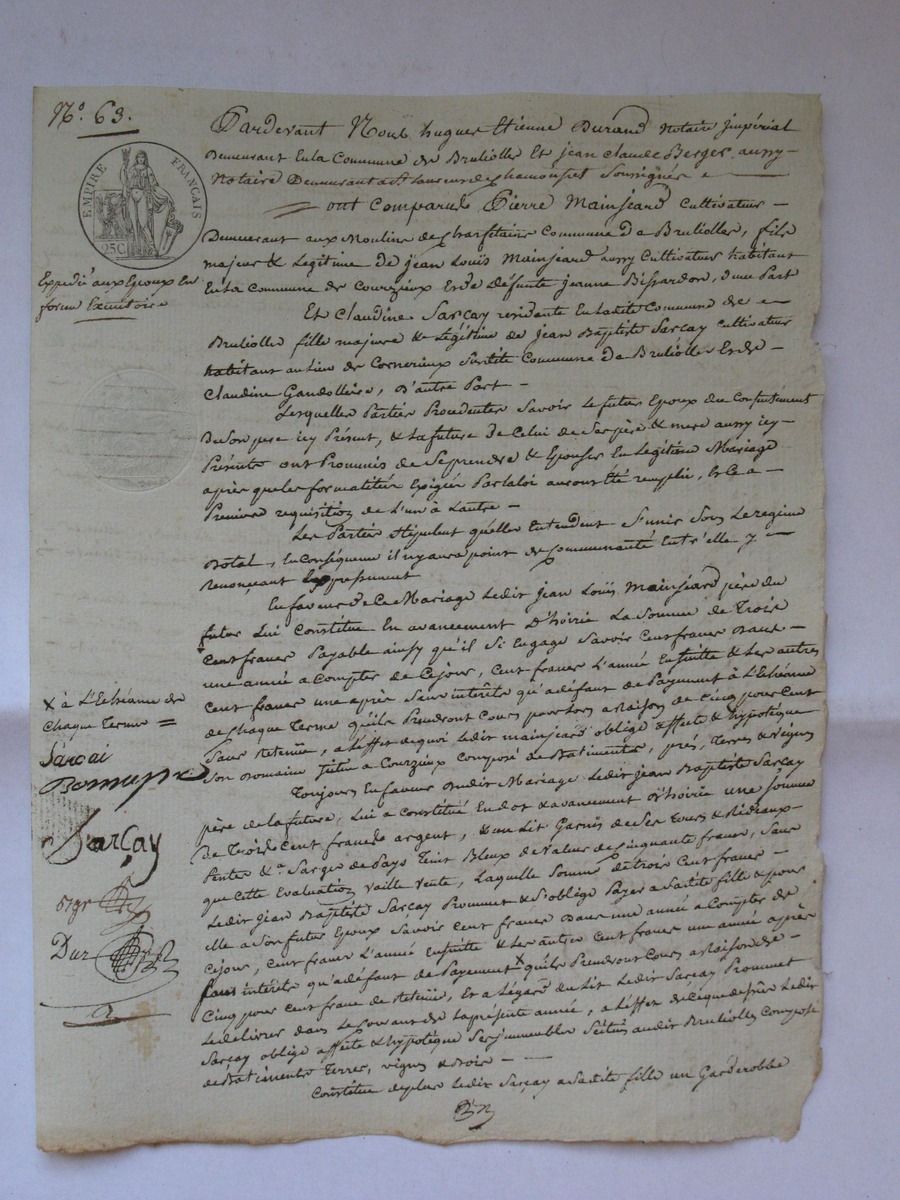 N.° 63.
EMPIRE FRANÇAIS
25C
Expedié aux Epoux En
forme Executoire
Pardevant Nous hugues Etienne Durand Notaire Impérial
Demeurant En la Commune de Brulioller Et jean claude Berger aussy
Notaire Demeurant a St Laurent de Chamousset Soussignés
ont Comparus Pierre Mainjeard Cultivateur
Demeurant aux Moulins de Commune de Brulioller, fils
majeur & Legitime De jean Louis Mainjeard aussy Cultivateur habitant
En la Commune de Courzieux Et de défunte jeanne Bissardon, d'une Part
Et Claudine Sarcay résidente En ladite Commune de
Brulioller fille majeure & Légitime de Jean Baptiste Sarcay Cultivateur
habitant au Lieu de Cornerieux Susdite Commune de Brulioller Et de
Claudine Gandolliere, D'autre Part
Lesquelles Parties Procedentes Savoir Le futur Epoux du Consentement
De Son pere icy Présent, & La future De Celui de Ses père & mere aussy icy
Présents ont Promis de Se prendre & Epouser En Légitime Mariage
après que les formalités Exigées Par la loi auront été remplies, Et Ce a
Premiere requisition de L'un à Lautre
Les Parties Stipulent quelles Entendent S'unir Sous Le regime
Dotal, En Conséquence il n'y aura point de Communauté Entr'elle y
Renonçant Expressement
En faveur de Ce Mariage Ledit Jean Louis Mainjeard père du
futur Lui Constitue En avancement D'hoirie La Somme de Trois
Cent francs Payable ainsy qu'il Si Engage Savoir Cent francs Dans
une année a Compter de Ce jour, Cent francs L'année Ensuitte & Les autres
Cent francs une après Sans intérêts qu'à défaut de Payement à L'Echéance
de Chaque Terme qu'ils Prendront Cours pour Lors a Raison de Cinq pour Cent
Sans Retenüe, a L'effet de quoi Ledit mainjeard oblige affecte & hypotèque
Son Domaine Situé a Courzieux Composé de Batiments, prés, Terres & vignes
Toujours En faveur Dudit Mariage Ledit Jean Baptiste Sarcay
père de la future, Lui a Constitué En dot & avancement D'hoirie une Somme
De Trois Cent francs argent, & un Lit Garnis de Ses Tours & Rideaux
Pentes & a Sarge de Pays Teint Bleux de Valeur de Cinquante francs, Sans
que Cette Evaluation Vaille Vente, Laquelle Somme de trois Cent francs
Ledit Jean Baptiste Sarcay Promet & S'oblige Payer a Sadite fille & pour
Elle a Son futur Epoux Savoir Cent francs Dans une année a Compter de
Ce jour, Cent francs L'année Ensuitte & Les autres Cent francs une année après
Sans intérêts qu'a défaut de Payement x qu'ils Prendront Cours a Raison de
Cinq pour Cent franc de Retenüe, Et a Légard du Lit Ledit Sarcay Promet
Le délivrer dans Le Courant de la présente année, a L'effet de Ce que dessus Ledit
Sarcay oblige affecte & hypotèque Ses immeubles Situés audit Brulioller Composé
de Batiments Terres, vignes & Bois
Constitue de plus Ledit Sarcay a Sadite fille un Garderobbe
X à L'Echéance de
Chaque Terme
Sarcai
Sarçay
Dur